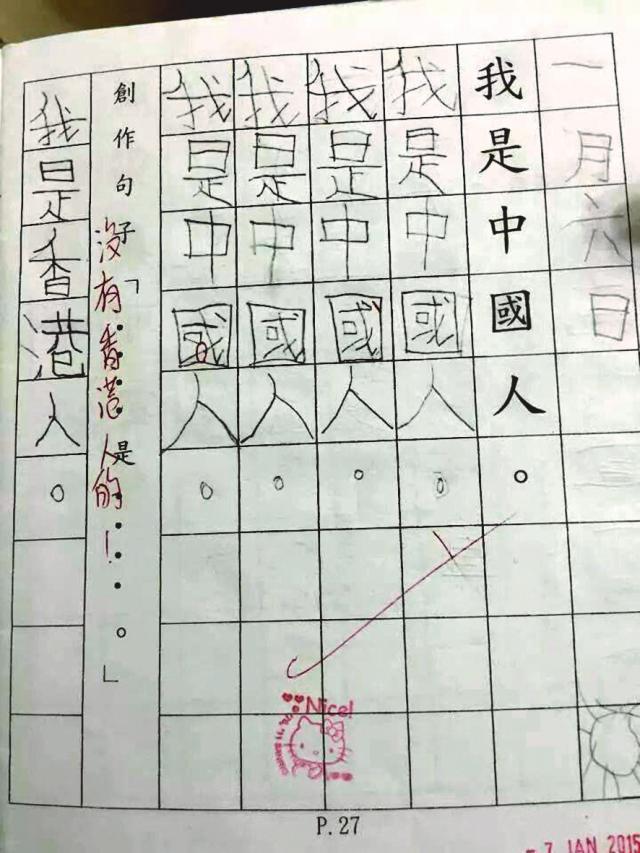 一月六日
我是中國人。
我是中國人。
我是中國人。
我是中國人。
我是中國人。
創作句子「……是……。」
沒有香港人的!
我是香港人。
Nice!
P.27
- 7 JAN 2015